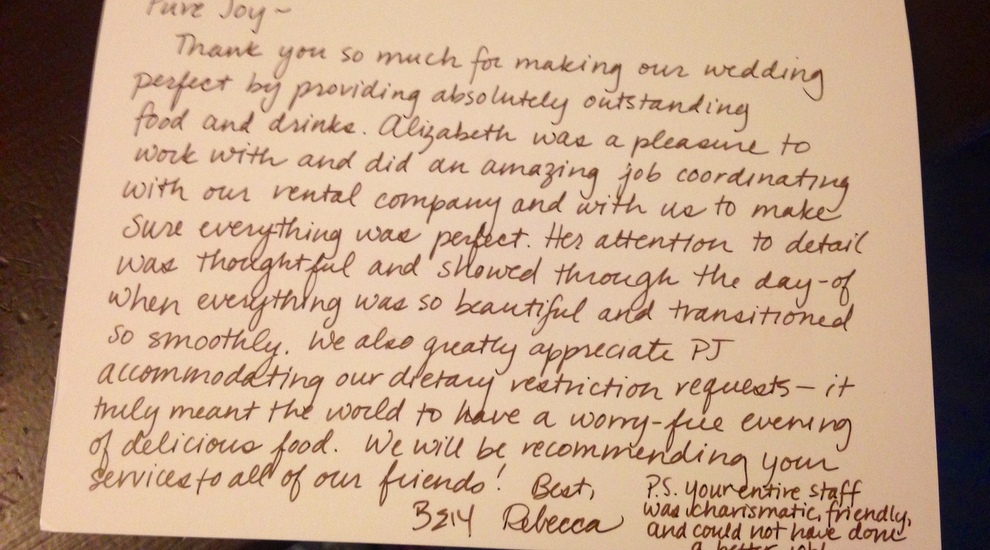 Pure Joy ~
Thank you so much for making our wedding
perfect by providing absolutely outstanding
food and drinks. Alizabeth was a pleasure to
work with and did an amazing job coordinating
with our rental company and with us to make
sure everything was perfect. Her attention to detail
was thoughtful and showed through the day-of
when everything was so beautiful and transitioned
so smoothly. We also greatly appreciate PJ
accommodating our dietary restriction requests — it
truly meant the world to have a worry-free evening
of delicious food. We will be recommending your
services to all of our friends! Best,
Rebecca
P.S. your entire staff
was charismatic, friendly,
and could not have done
a better job!